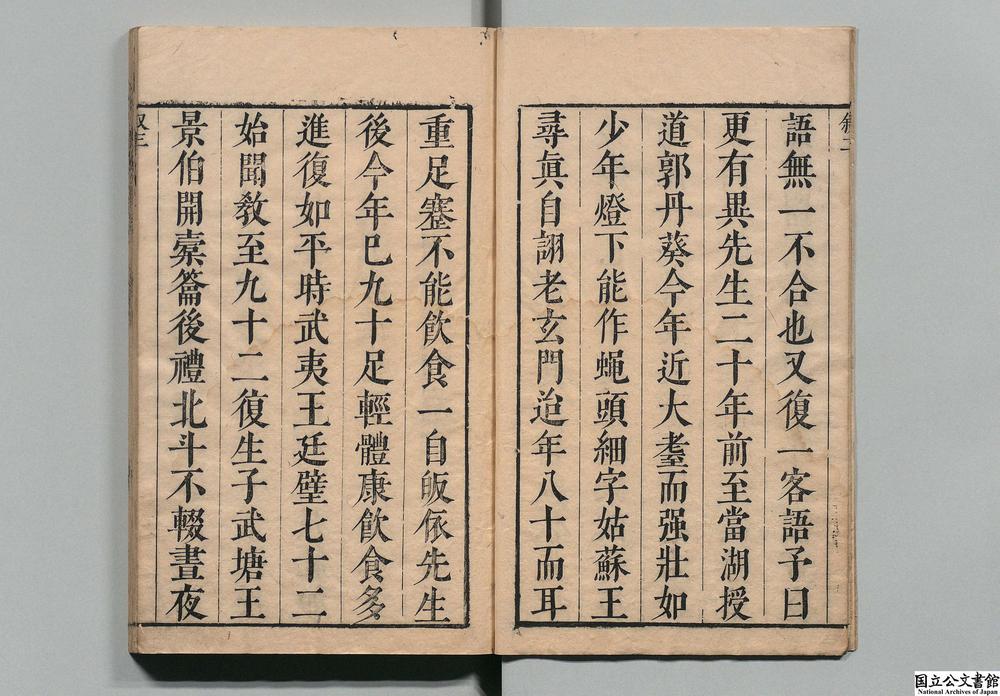 敍二
語無一不合也又復一客語予曰
更有異先生二十年前至當湖授
道郭丹葵今年近大耋而强壯如
少年燈下能作蝇頭細字姑蘇王
尋眞自詡老玄門迨年八十而耳
重足蹇不能飲食一自皈依先生
後今年已九十足輕體康飲食多
進復如平時武夷王廷璧七十二
始聞敎至九十二復生子武塘王
景伯開槖籥後禮北斗不輟晝夜
叙三
国立公文書館
National Archives of Japan